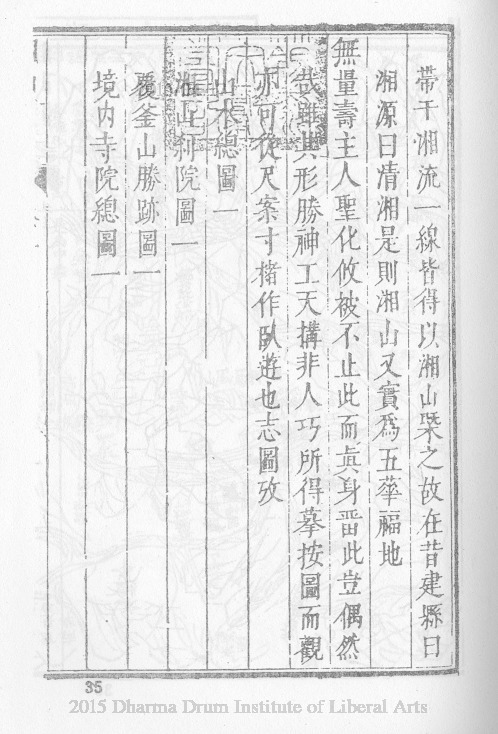 帶干湘流一線皆得以湘山槩之故在昔建縣曰
湘源曰清湘是則湘山又實為五華福地
無量壽主人聖化攸被不止此而眞身畱此豈偶然
哉雖其形勝神工天搆非人巧所得摹按圖而觀
亦可從尺案寸楮作臥遊也志圖攷
山水總圖一
湘山刹院圖一
覆釜山勝跡圖一
境内寺院總圖一
35
2015 Dharma Drum Institute of Liberal Arts